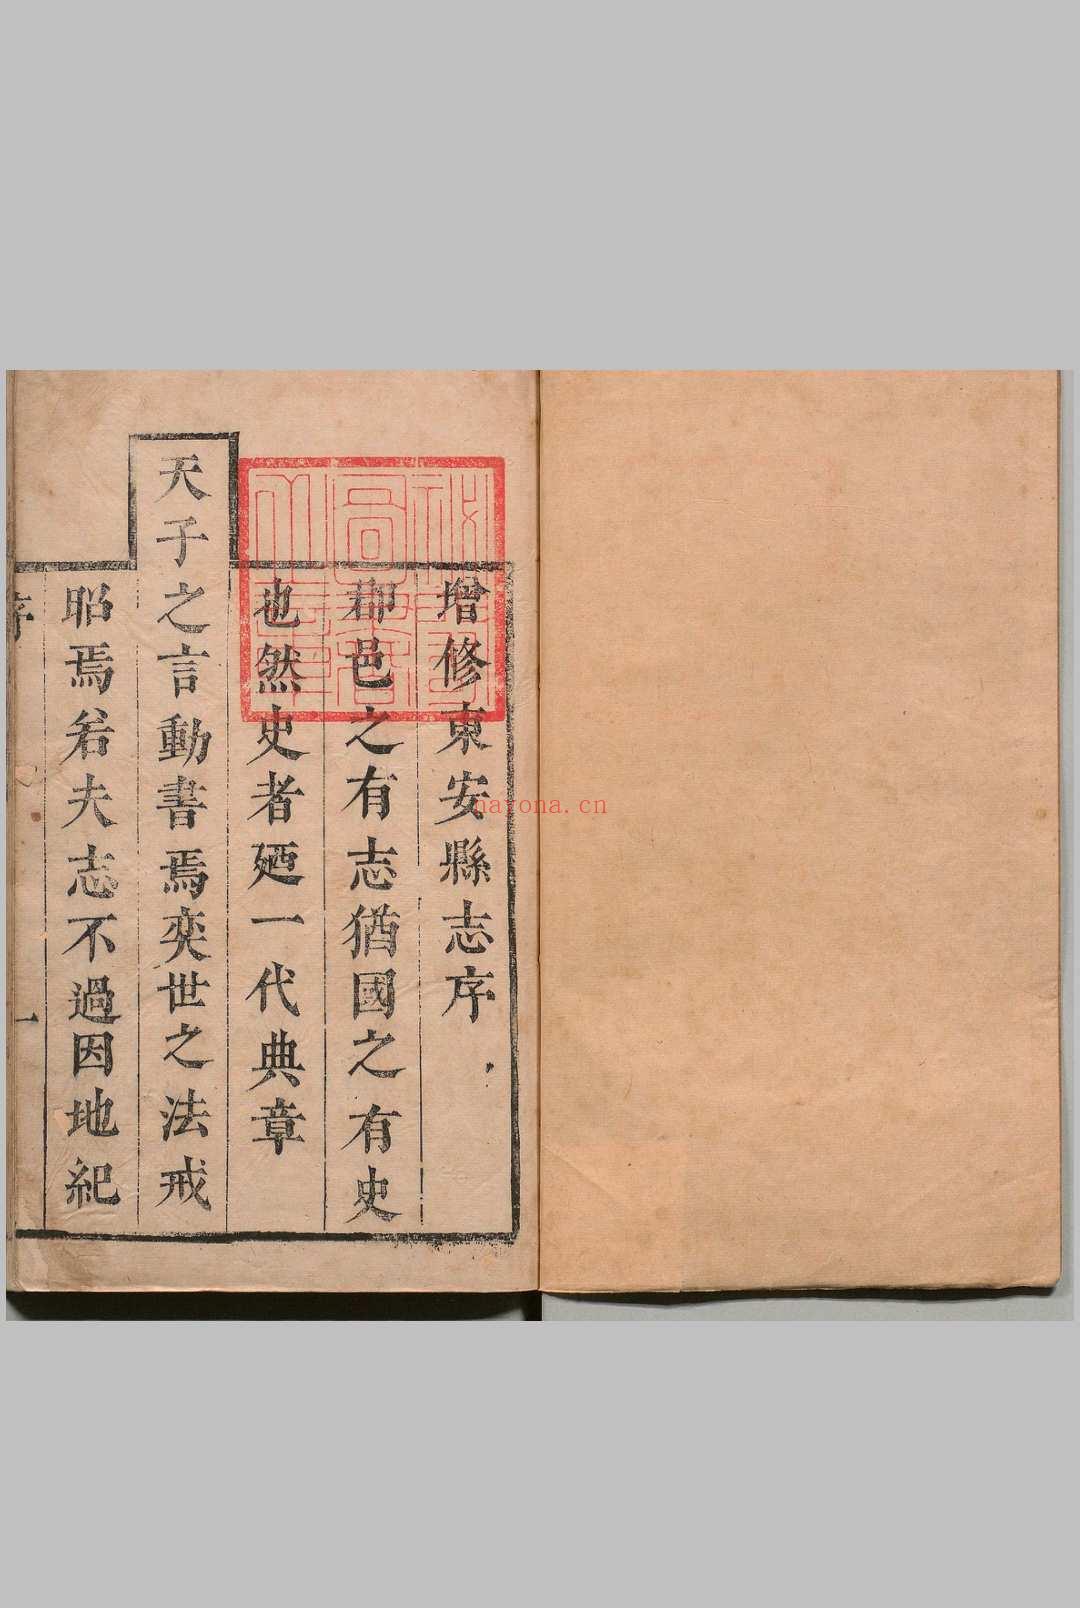 增修東安縣志序
郡邑之有志猶國之有史
也然史者廼一代典章
天子之言動書焉奕世之法戒
昭焉若夫志不過因地紀
序
一
nayona.cn